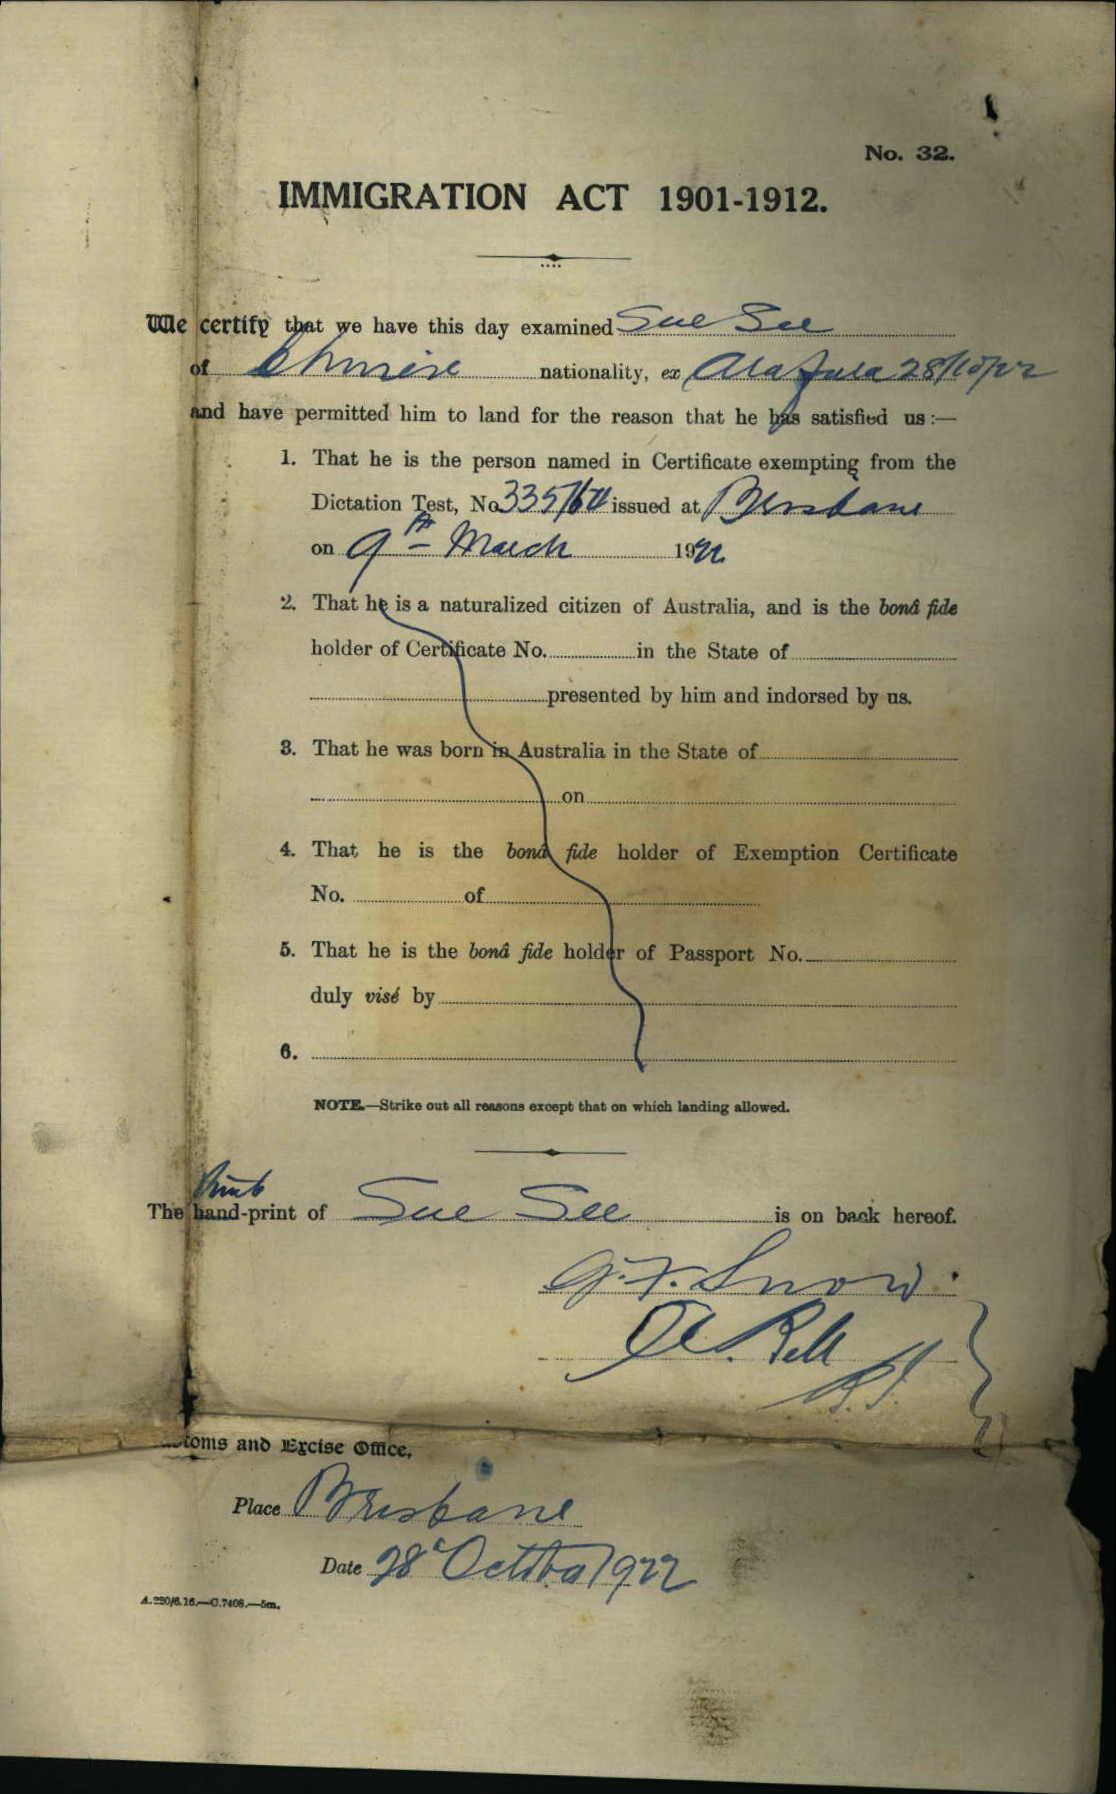 No. 32.
IMMIGRATION ACT 1901-1912.
We certify that we have this day examined Sue See
of Chinese nationality, ex Arafura 28/10/22
and have permitted him to land for the reason that he has satisfied us :—
1. That he is the person named in Certificate exempting from the
Dictation Test, No. issued at Brisbane
on 9th March 1922
2. That he is a naturalized citizen of Australia, and is the bonâ fide
holder of Certificate No. in the State of
presented by him and indorsed by us.
3. That he was born in Australia in the State of
on
4. That he is the bonâ fide holder of Exemption Certificate
No. of
5. That he is the bonâ fide holder of Passport No.
duly visé by
6.
NOTE.—Strike out all reasons except that on which landing allowed.
The hand-print of Sue See is on back hereof.
Snow
toms and Excise Office,
Place Brisbane
Date 28 October 1922
A.220/6.16.—C.7408.—5m.